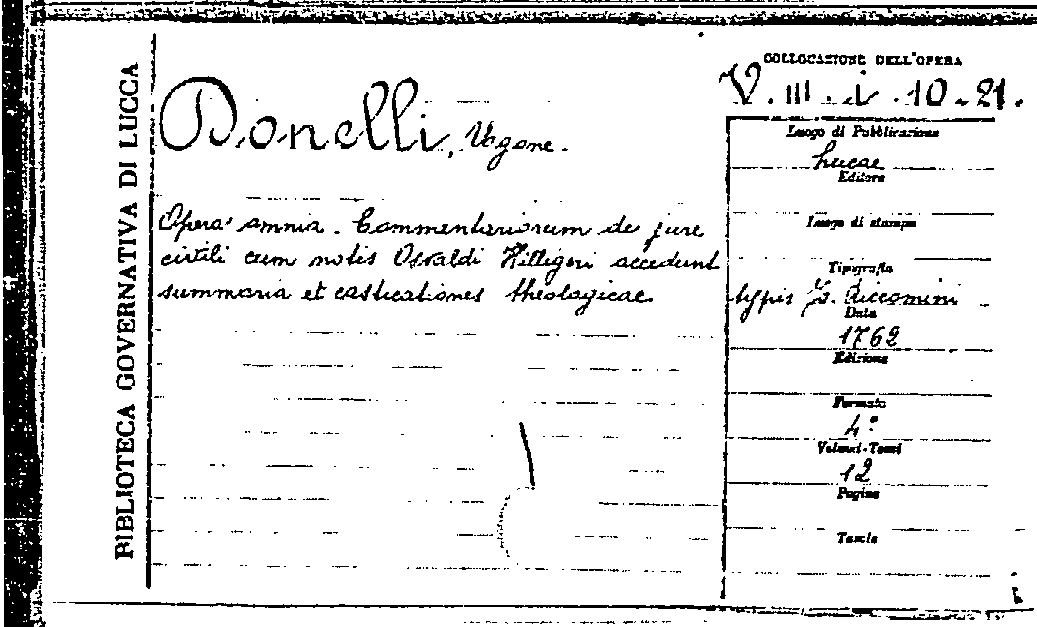 BIBLIOTECA GOVERNATIVA DI LUCCA
Donelli, Ugone.
Opera omnia. Commentariorum de jure
civili cum notis Osvaldi Hilligeri accedunt
summaria et casticationes theologicae
COLLOCAZIONE DELL'OPERA
V. III. i. 10-21.
Luogo di Pubblicazione
Lucae
Editore
Luogo di stampa
Tipografia
typis J. Riccomini
Data
1762
Edizione
Formato
4°
Volumi-Tomi
12
Pagine
Tavole